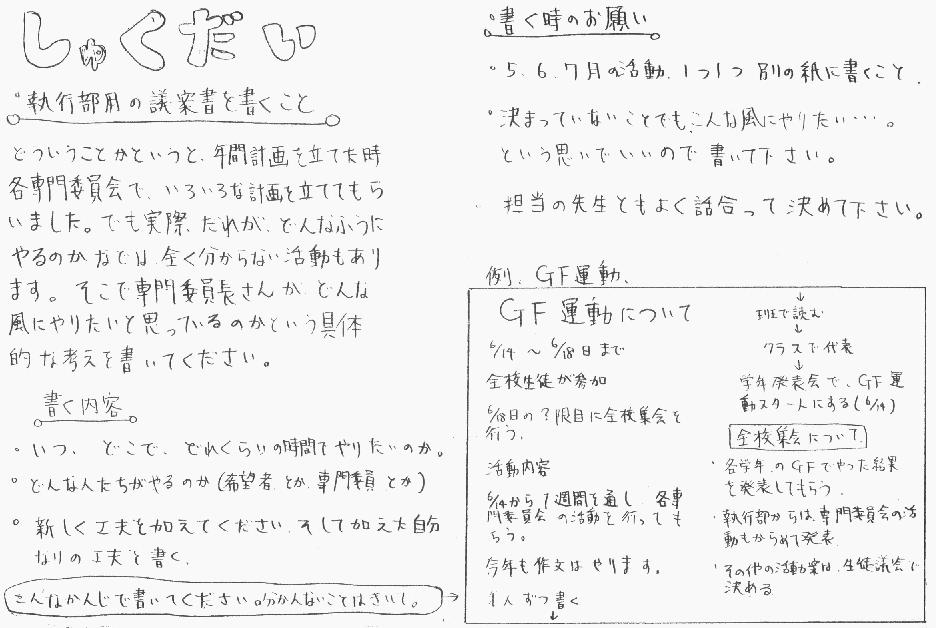 しゅくだい
・執行部用の議案書を書くこと
どういうことかというと、年間計画を立てた時
各専門委員会で、いろいろな計画を立ててもら
いました。でも実際、だれが、どんなふうに
やるのかなどは、全く分からない活動もあり
ます。そこで専門委員長さんが、どんな
風にやりたいと思っているのかという具体
的な考えを書いてください。
書く内容
・いつ、どこで、どれくらいの時間でやりたいのか。
・どんな人たちがやるのか(希望者とか、専門委員とか)
・新しく工夫を加えてください、そして加えた自分
なりの工夫を書く、
こんなかんじで書いてください。分かんないことはさいし。→
・書く時のお願い
・5、6、7月の活動、1つ1つ別の紙に書くこと、
・決まっていないことでも、こんな風にやりたい・・・。
という思いでいいので書いて下さい。
・担当の先生ともよく話合って決めて下さい。
例、GF運動、
GF運動について
6/14 ～ 6/18日まで
全校生徒が参加
6/18日の?限目に全校集会を
行う、
活動内容
6/14から1週間を通し、各専
門委員会の活動を行っても
らう。
今年も作文はやります。
1人ずつ書く
↓
↓
班で読む
↓
クラスで代表
↓
学年発表会で、GF運
動スタートにする(6/14)
全校集会について
・各学年のGFでやった結果
を発表してもらう、
・執行部からは、専門委員会の活
動もからめて発表
・その他の活動案は、生徒議会で
決める